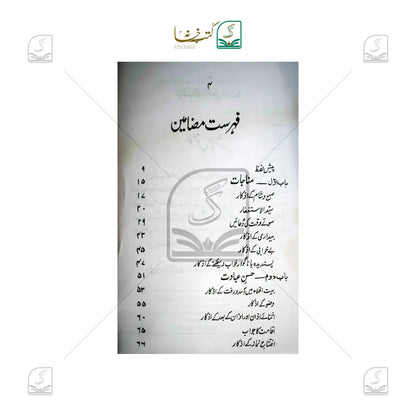 کتب خانہ
۴
فہرست مضامین
پیش لفظ ۹
باب اوّل — مناجات ۱۵
صبح و شام کے اذکار ۱۷
سیّد الاستغفار ۲۰
سوتے وقت کی دُعائیں ۲۹
بیداری کے اذکار ۴۳
بے خوابی کے اذکار ۴۵
پسندیدہ یا ناگوار خواب دیکھنے کے اذکار ۴۷
باب دوم — حسنِ عبادت ۵۱
بیت الخلاء میں آمد و رفت کے اذکار ۵۳
وضو کے اذکار ۵۵
اثنائے اذان اور اذان کے بعد کے اذکار ۶۰
اقامت کا جواب ۶۵
افتتاحِ نماز کے اذکار ۶۶